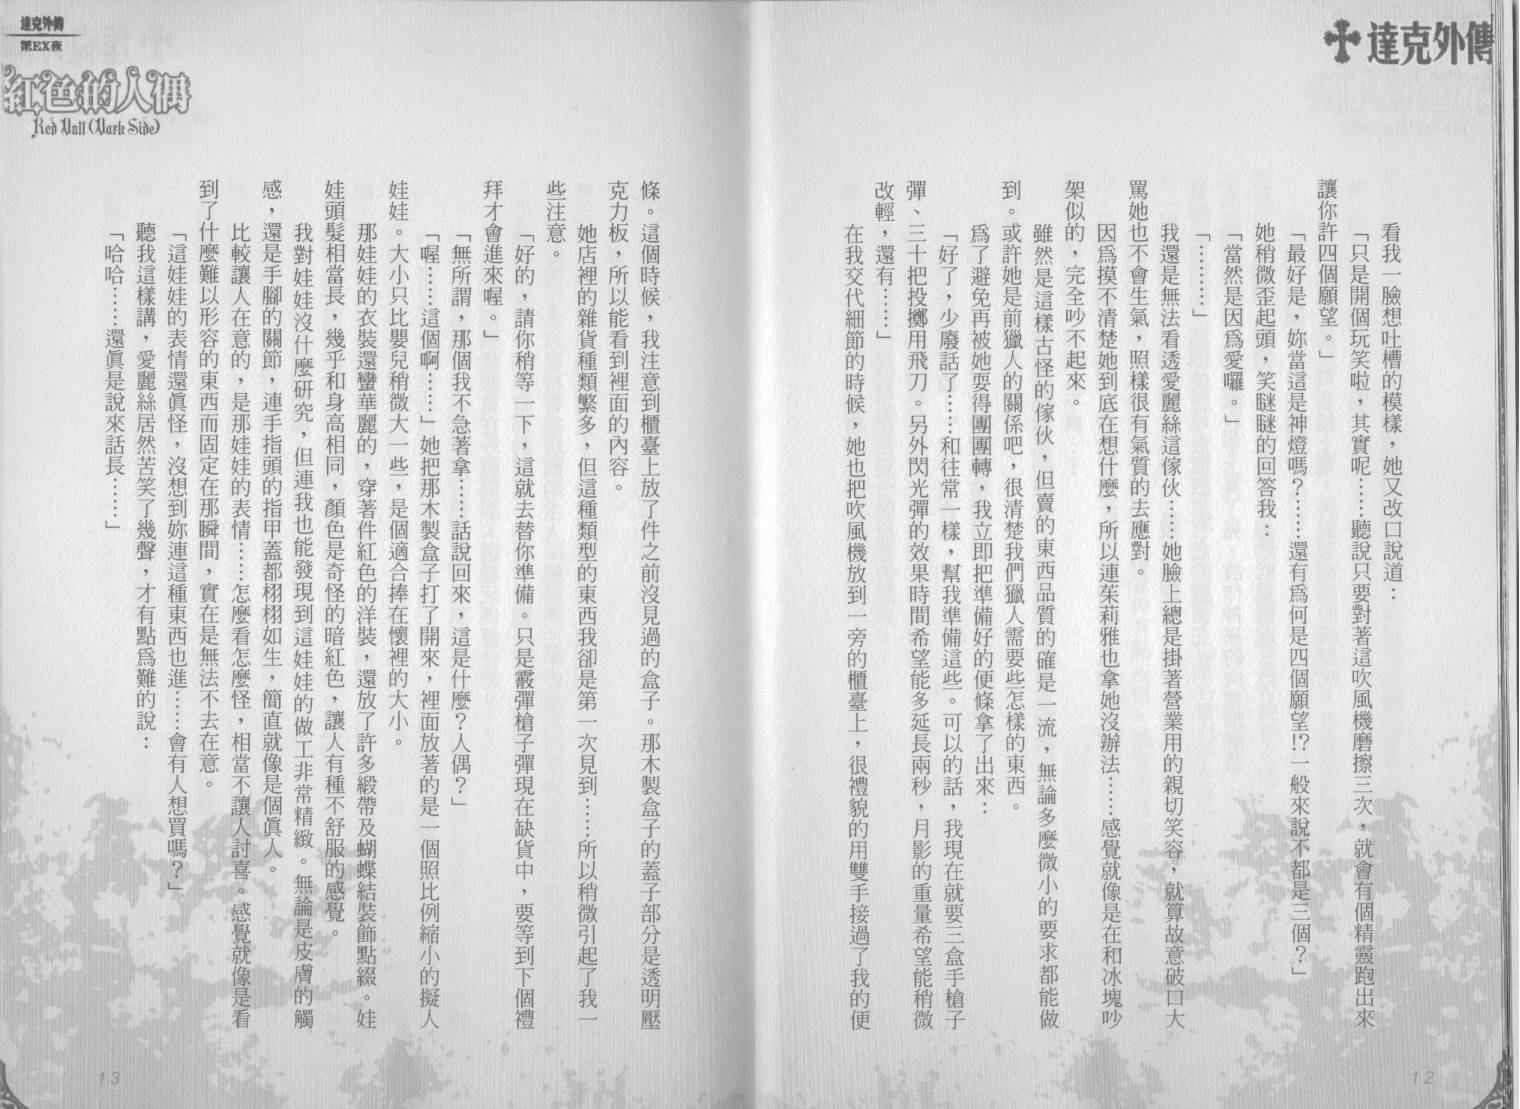 達克外傳
看我一臉想吐槽的模樣，她又改口說道：
「只是開個玩笑啦，其實呢……聽說只要對著這吹風機磨擦三次，就會有個精靈跑出來
讓你許四個願望。」
「最好是，妳當這是神燈嗎？……還有為何是四個願望!?一般來說不都是三個？」
她稍微歪起頭，笑瞇瞇的回答我：
「當然是因為愛囉。」
「…………」
我還是無法看透愛麗絲這傢伙……她臉上總是掛著營業用的親切笑容，就算故意破口大
罵她也不會生氣，照樣很有氣質的去應對。
因為摸不清楚她到底在想什麼，所以連茱莉雅也拿她沒辦法……感覺就像是在和冰塊吵
架似的，完全吵不起來。
雖然是這樣古怪的傢伙，但賣的東西品質的確是一流，無論多麼微小的要求都能做
到。或許她是前獵人的關係吧，很清楚我們獵人需要些怎樣的東西。
為了避免再被她耍得團團轉，我立即把準備好的便條拿了出來：
「好了，少廢話了……和往常一樣，幫我準備這些。可以的話，我現在就要三盒手槍子
彈、三十把投擲用飛刀。另外閃光彈的效果時間希望能多延長兩秒，月影的重量希望能稍微
改輕，還有……」
在我交代細節的時候，她也把吹風機放到一旁的櫃臺上，很禮貌的用雙手接過了我的便
12
達克外傳
第EX夜
紅色的人偶
Red Doll (Dark Side)
條。這個時候，我注意到櫃臺上放了件之前沒見過的盒子。那木製盒子的蓋子部分是透明壓
克力板，所以能看到裡面的內容。
她店裡的雜貨種類繁多，但這種類型的東西我卻是第一次見到……所以稍微引起了我一
些注意。
「好的，請你稍等一下，這就去替你準備。只是霰彈槍子彈現在缺貨中，要等到下個禮
拜才會進來喔。」
「無所謂，那個我不急著拿……話說回來，這是什麼？人偶？」
「喔……這個啊……」她把那木製盒子打了開來，裡面放著的是一個照比例縮小的擬人
娃娃。大小只比嬰兒稍微大一些，是個適合捧在懷裡的大小。
那娃娃的衣裝還蠻華麗的，穿著件紅色的洋裝，還放了許多緞帶及蝴蝶結裝飾點綴。娃
娃頭髮相當長，幾乎和身高相同，顏色是奇怪的暗紅色，讓人有種不舒服的感覺。
我對娃娃沒什麼研究，但連我也能發現到這娃娃的做工非常精緻。無論是皮膚的觸
感，還是手腳的關節，連手指頭的指甲蓋都栩栩如生，簡直就像是個真人。
比較讓人在意的，是那娃娃的表情……怎麼看怎麼怪，相當不讓人討喜。感覺就像是看
到了什麼難以形容的東西而固定在那瞬間，實在是無法不去在意。
「這娃娃的表情還真怪，沒想到妳連這種東西也進……會有人想買嗎？」
聽我這樣講，愛麗絲居然苦笑了幾聲，才有點為難的說：
「哈哈……還真是說來話長……」
13